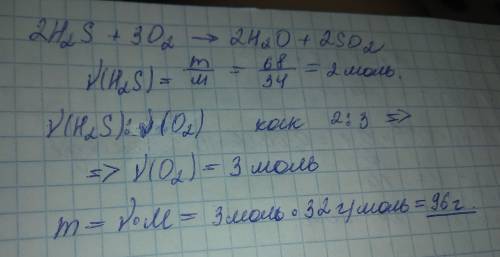 2H₂S + 3O₂ → 2H₂O + 2SO₂
ν(H₂S) = m/M = 68/34 = 2 моль.
ν(H₂S) : ν(O₂) как 2 : 3 =>
=> ν(O₂) = 3 моль
m = ν•M = 3 моль • 32 г/моль = 96 г.